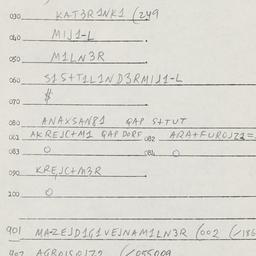 030 KAT3R1NK1 (249
040 M1J1-L
050 M1LN3R
060 S1S+T1L1ND3RM1J1-L
070 $
080 ANAXSAN81 QAP S+TUT
081 AKREJC+M1 QAP DORF 082 ARA+FUROJZ1=
083 0 084 0
090 KREJC+M3R
100 0
901 MAZEJD1G1VEJNAM1LN3R (002 (/186
902 AGROJSOJZ2 (/055009